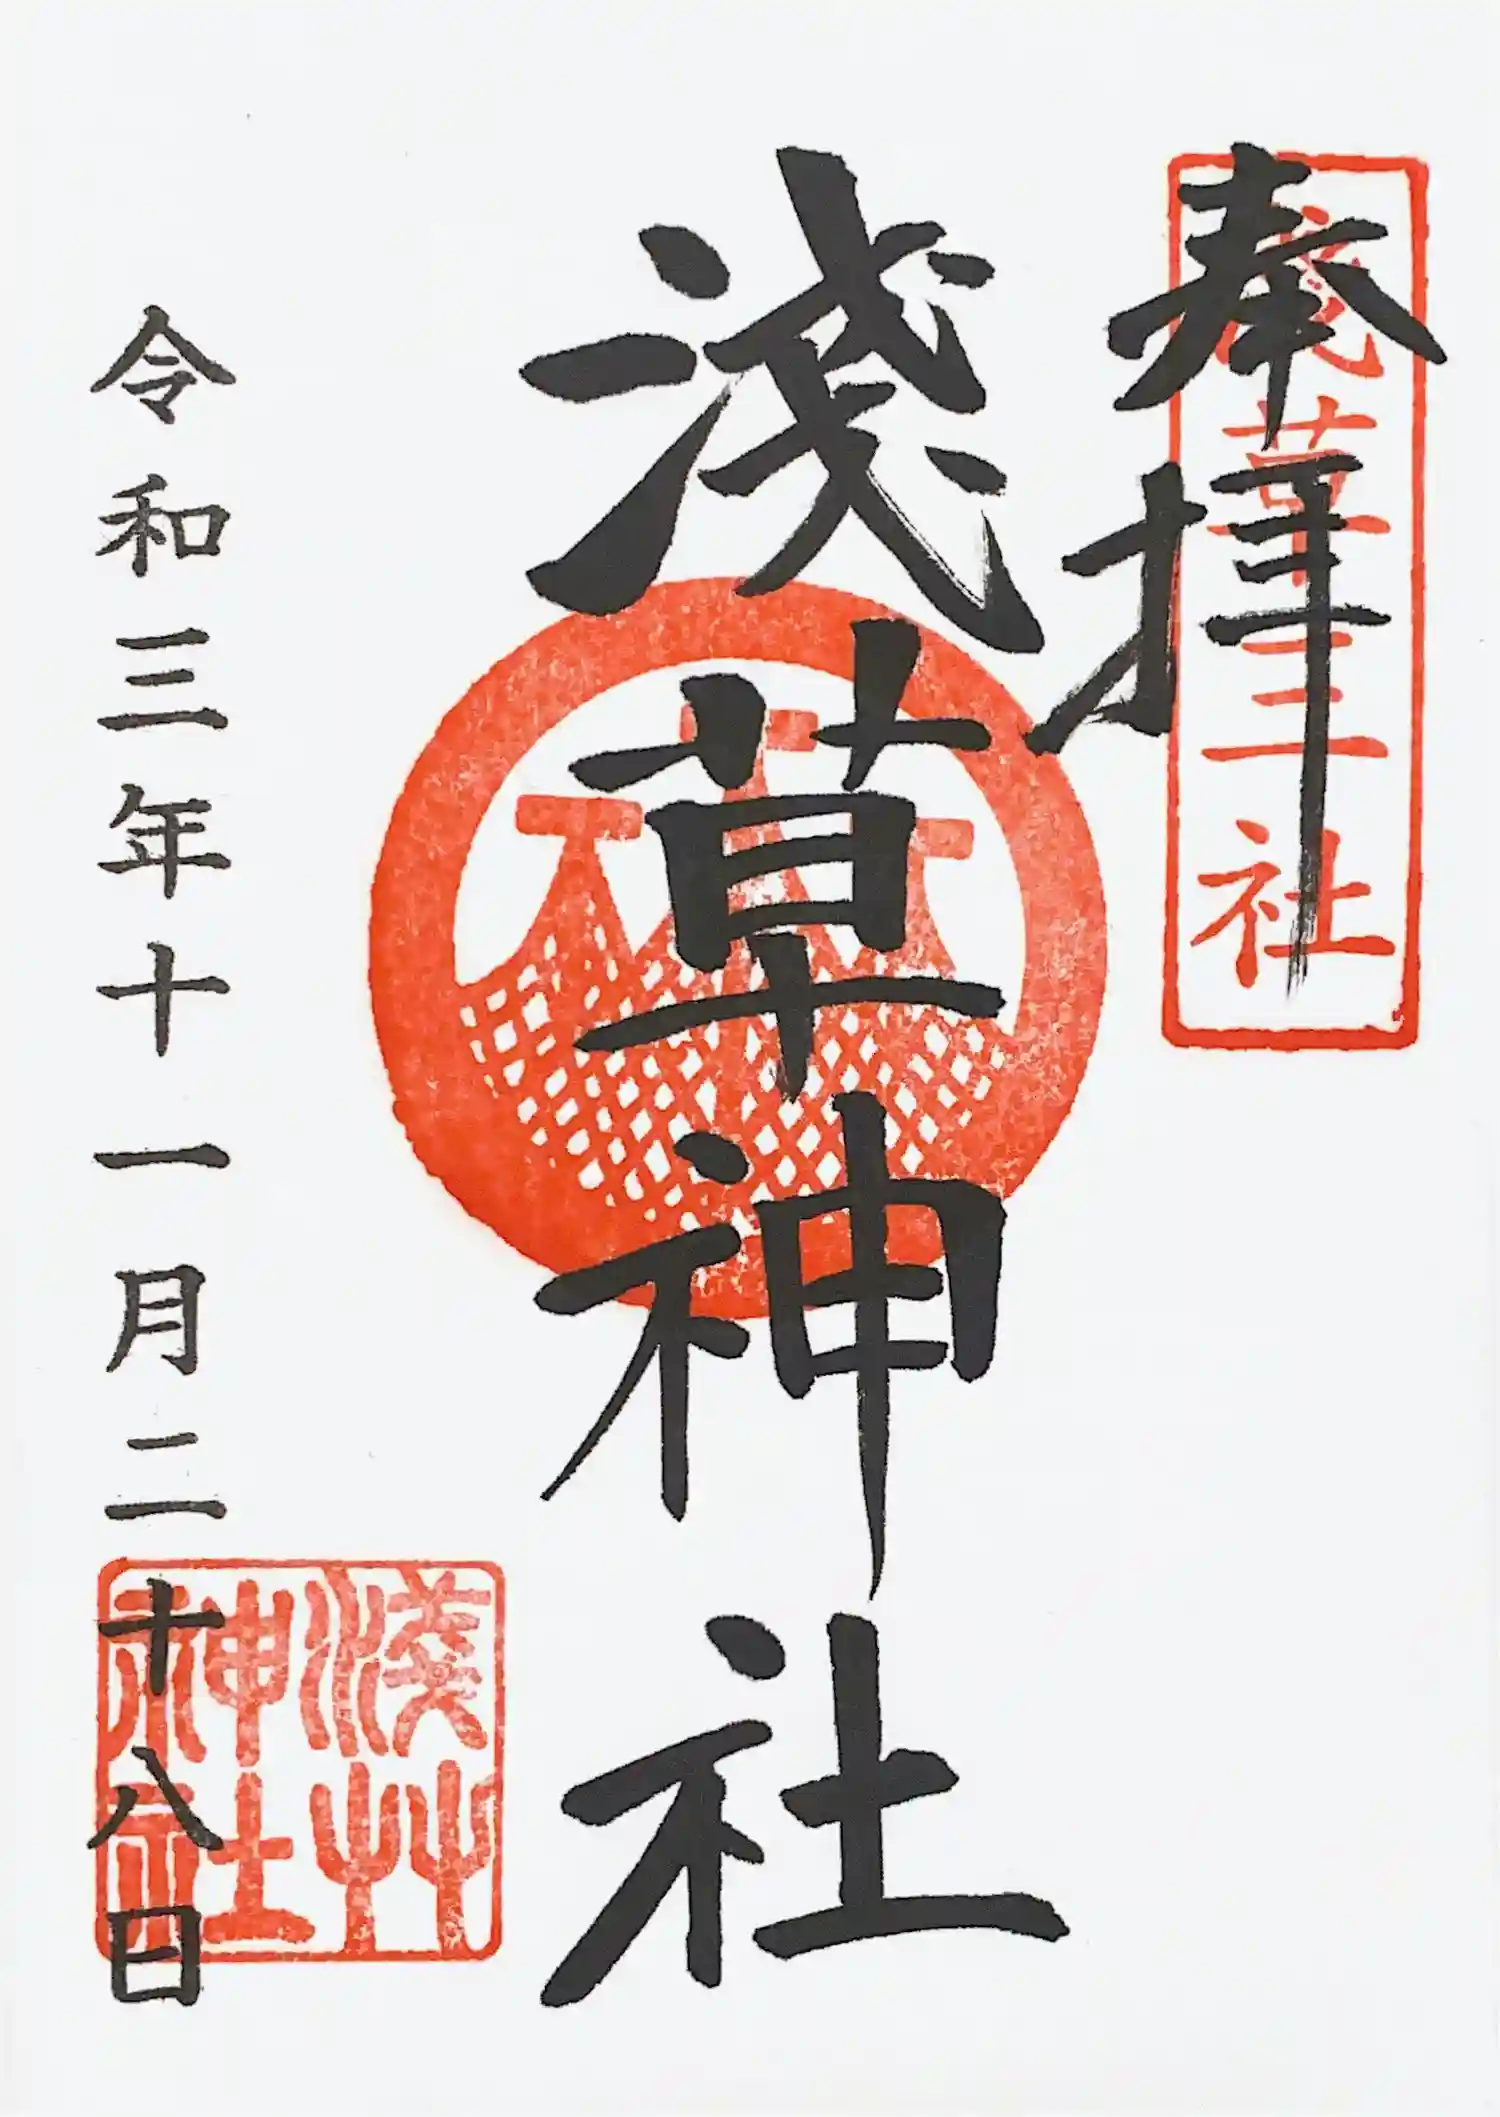 奉拝
浅草三社
浅草神社
令和三年十一月二十八日
淺艸
神社